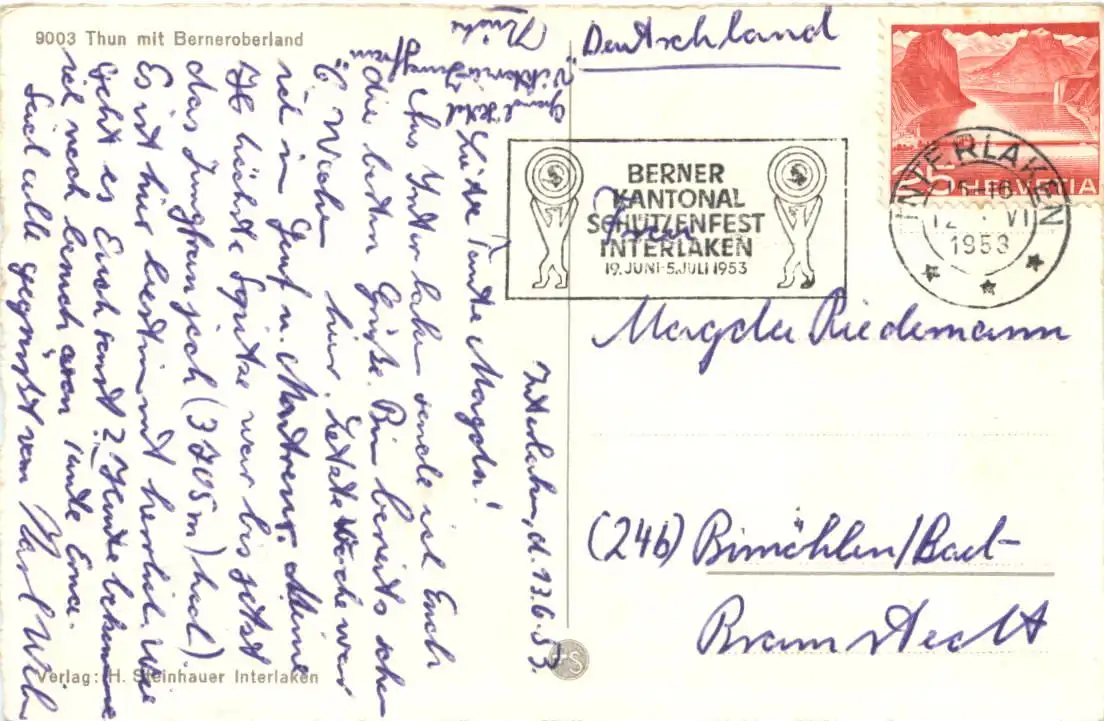 9003 Thun mit Berneroberland
Deutschland
HELVETIA
INTERLAKEN
15-16
12. VI
1953
BERNER
KANTONAL
SCHÜTZENFEST
INTERLAKEN
19. JUNI-5. JULI 1953
Frau
Magda Riedemann
(24b) Bimöhlen/Bad-
Bramstedt
Interlaken, d. 13.6.53.
Grand Hotel
"Viktoria Jungfrau"
Liebe Tante Magda!
Aus Interlaken sende ich Euch
die besten Grüße. Bin bereits schon
6 Wochen hier. Letzte Woche war
ich in Genf u. Montreux. Meine
höchste Spitze war bis jetzt
das Jungfraujoch (3705 m) hoch)
Es ist hier bestimmt herrlich. Wie
geht es Euch sonst? Heute bekomme
ich noch Besuch von Tante Erna.
Seid alle gegrüßt von Karl Wilh
Verlag: H. Steinhauer Interlaken